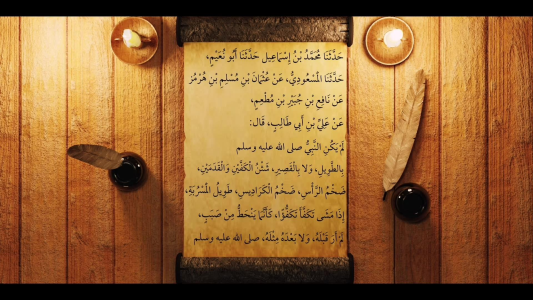 حَدَّثَنَا مُحَمَّدُ بْنُ إِسْمَاعِيلَ حَدَّثَنَا أَبُو نُعَيْمٍ،
حَدَّثَنَا الْمَسْعُودِيُّ، عَنْ عُثْمَانَ بْنِ مُسْلِمِ بْنِ هُرْمُزَ
عَنْ نَافِعِ بْنِ جُبَيْرِ بْنِ مُطْعِمٍ،
عَنْ عَلِيِّ بْنِ أَبِي طَالِبٍ، قَالَ:
لَمْ يَكُنِ النَّبِيُّ صلى الله عليه وسلم
بِالطَّوِيلِ، وَلَا بِالْقَصِيرِ، شَثْنُ الْكَفَّيْنِ وَالْقَدَمَيْنِ،
ضَخْمُ الرَّأْسِ، ضَخْمُ الْكَرَادِيسِ، طَوِيلُ الْمَسْرُبَةِ،
إِذَا مَشَى تَكَفَّأَ تَكَفُّؤًا، كَأَنَّمَا يَنْحَطُّ مِنْ صَبَبٍ،
لَمْ أَرَ قَبْلَهُ، وَلَا بَعْدَهُ مِثْلَهُ، صلى الله عليه وسلم